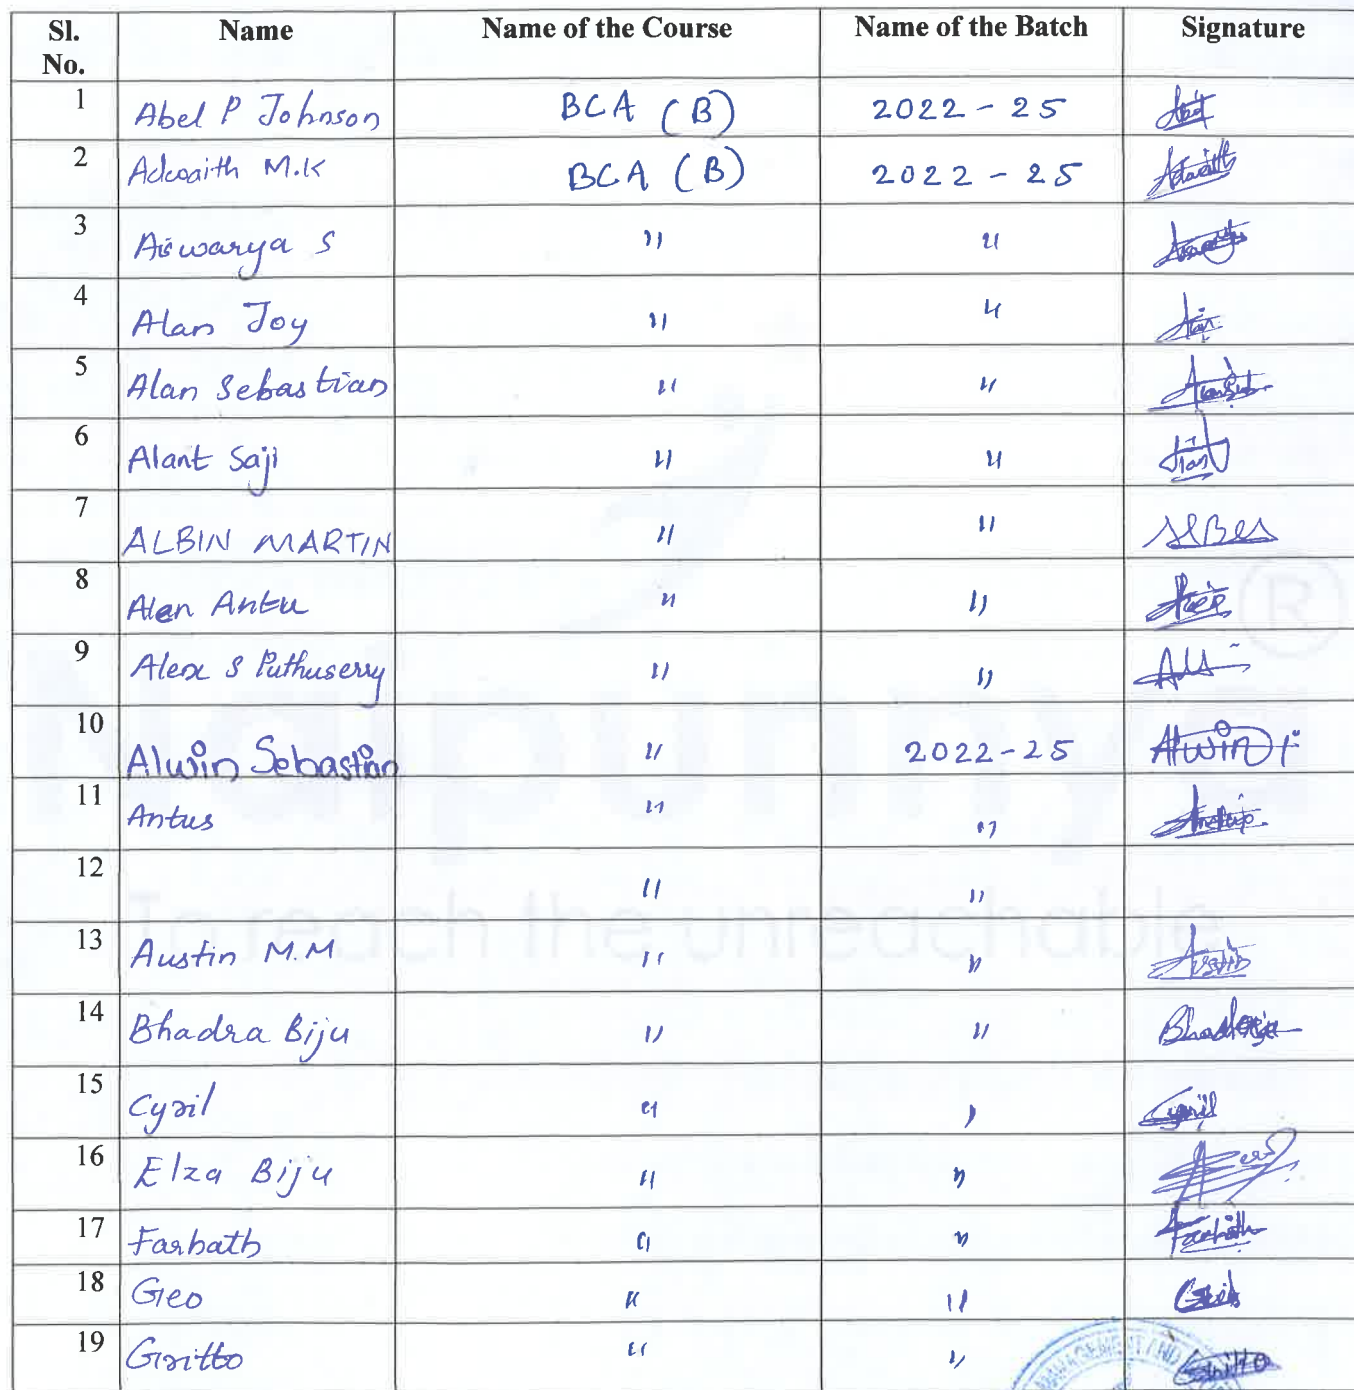 Sl. No. Name Name of the Course Name of the Batch Signature
1 Abel P Johnson BCA (B) 2022 - 25
2 Adwaith M.K BCA (B) 2022 - 25 Adwaith
3 Aiswarya S " "
4 Alan Joy " " Alan
5 Alan Sebastian " "
6 Alant Saji " " Alant
7 ALBIN MARTIN " "
8 Alen Antu " "
9 Alex S Puthuserry " "
10 Alwin Sebastian " 2022-25 Alwin
11 Antus " "
12 " "
13 Austin M.M " " Austin
14 Bhadra Biju " "
15 Cyril " " Cyril
16 Elza Biju " "
17 Farhath " " Farhath
18 Geo " "
19 Gritto " " Gritto
Naipunnya ®
To reach the unreachable
MANAGEMENT AND